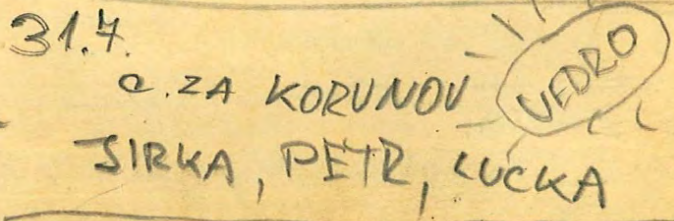 31.7.
C. ZA KORUNOU
VEDRO
JIRKA, PETR, LUCKA